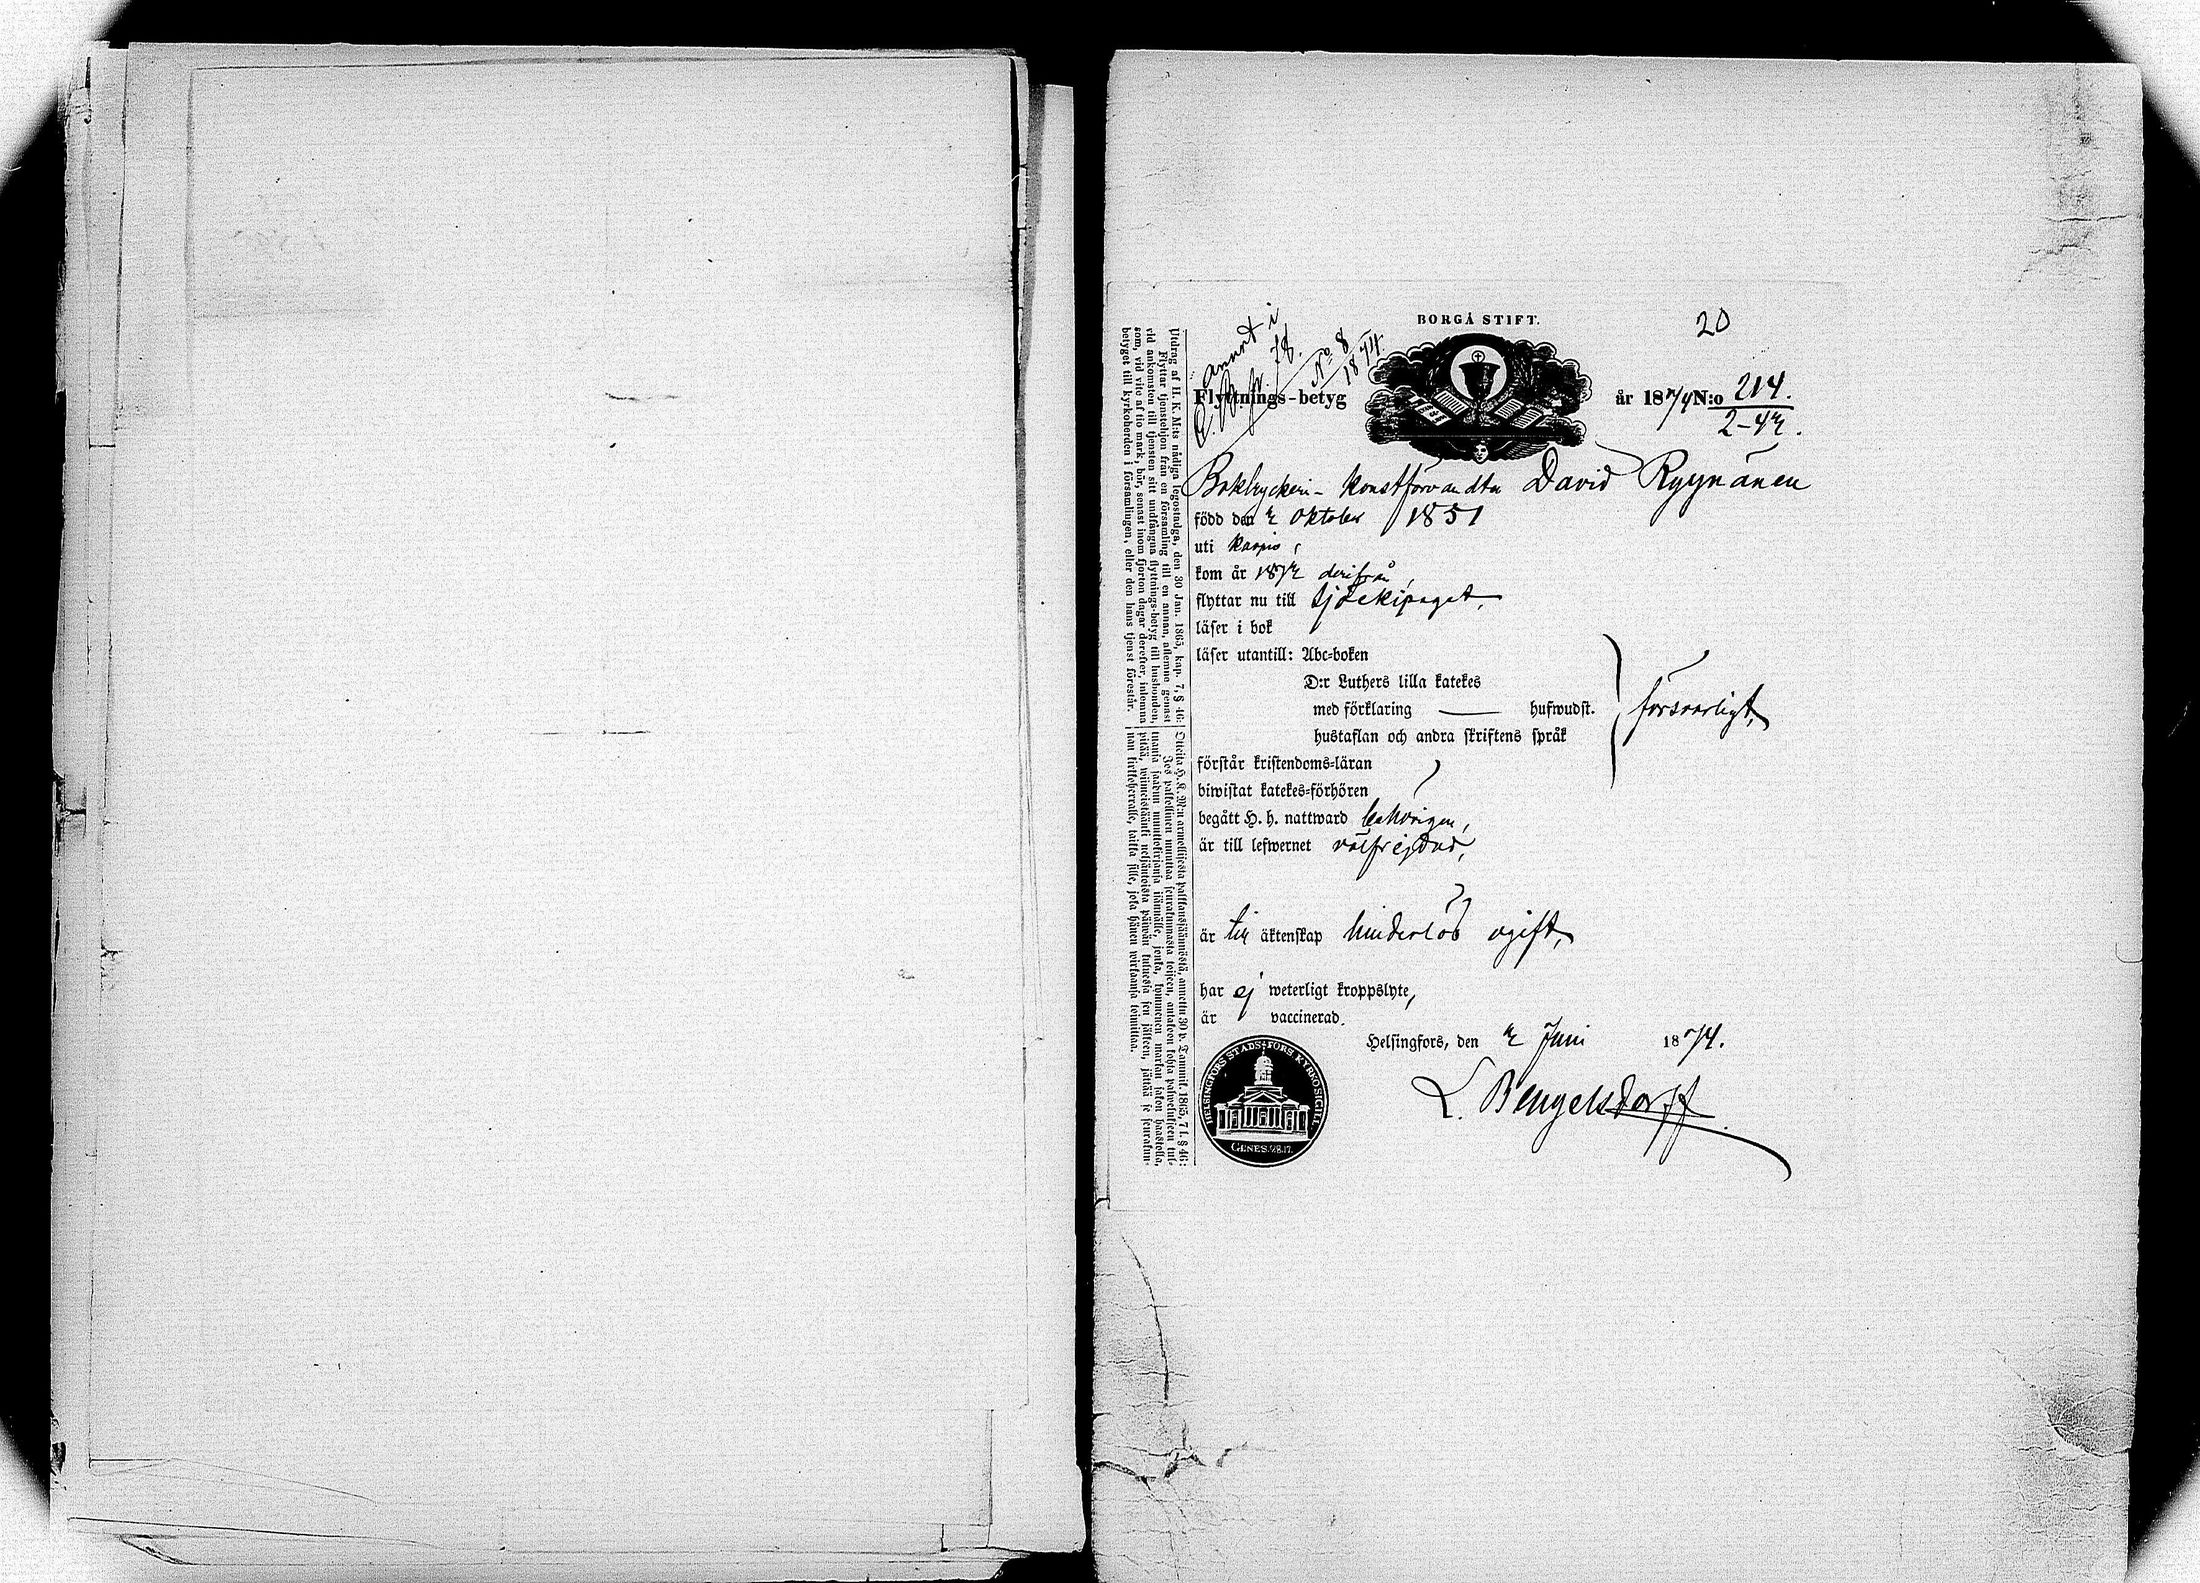 20
BORGÅ STIFT.
annot i
No 8
1874.
Flyttnings-betyg
år 1874 N:o 214.
2-42.
Boktryckeri-konstförvandten David Ryynänen
född den 2 Oktober 1851
uti Kuopio,
kom år 1872 derifrån,
flyttar nu till Sjöekipaget,
läser i bok
läser utantill: Abc-boken
D:r Luthers lilla katekes
med förklaring — hufwudst.
hustaflan och andra skriftens språk
försvarligt,
förstår kristendoms-läran
biwistat katekes-förhören
begått H. h. nattward behörigen,
är till lefwernet välfrejdad,
är till äktenskap hinderlös ogift,
har ej weterligt kroppslyte,
är vaccinerad.
Helsingfors, den 2 Juni 1874.
L. Bengelsdorff
HELSINGFORS STADS-FÖRS KYRKOSIGILL
GENES. 28.17.
Utdrag af H. K. M:ts nådiga legostadga, den 30 Jan. 1865, kap. 7, § 46:
Flyttar tjenstehjon från en församling till en annan, aflemne genast
vid ankomsten till tjensten sitt undfångna flyttnings-betyg till husbonden,
som, vid vite af tio mark, bör, senast inom fjorton dagar derefter, inlemna
betyget till kyrkoherden i församlingen, eller den hans tjenst förestår.
Otteita H. K. M:n armollisesta palkkausfäännöstä, annettu 30 p. Tammik. 1865, 7 l. § 46:
Jos palkollinen muuttaa seurakunnasta toiseen, antakoon kohta palwelukseen tul-
tuansa saadun muuttokirjansa isännälle, jonka, kymmenen markan sakon haastolla,
pitää, wiimeistäänki neljäntoista päiwän kuluessa sen jälkeen, jättää se seurakun-
nan kirkkoherralle, taikka sille, joka hänen wirkaansa toimittaa.